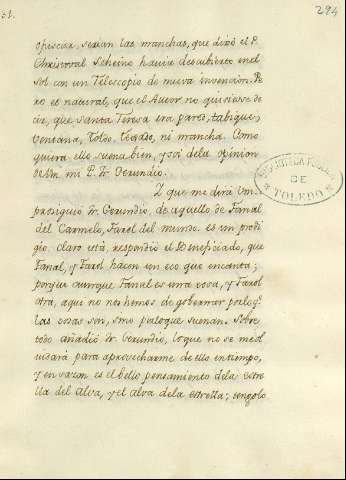 51.
294
opuscar, serian las manchas, que dixo el P.
Christoval Scheino havia descubierto en el
sol con un Telescopio de nueva invencion. Pe
ro es natural, que el Autor no quisiese de
cir, que santa Teresa era pared, tabique,
ventana, Toldo, texado, ni mancha. Como
quiera ello suena bien, y soi de la opinion
de Vm. mi P. Fr. Gerundio.
Y que me dirá Vm.
prosiguió Fr. Gerundio, de aquello de Fanal
del Carmelo, Farol del mundo. es un prodi
gio. Claro está, respondió el Beneficiado, que
Fanal, y Farol hacen un eco que encanta;
porque aunque Fanal es una cosa, y Farol
otra, aqui no nos hemos de gobernar por lo q.e
las cosas son, sino por lo que suenan. Sobre
todo añadió Fr. Gerundio, lo que no se me ol
vidará para aprovecharme de ello en tiempo,
y en sazon es el bello pensamiento de la estre
lla del Alva, y el Alva de la estrella; tengolo
BIBLIOTECA PUBLICA
DE
TOLEDO